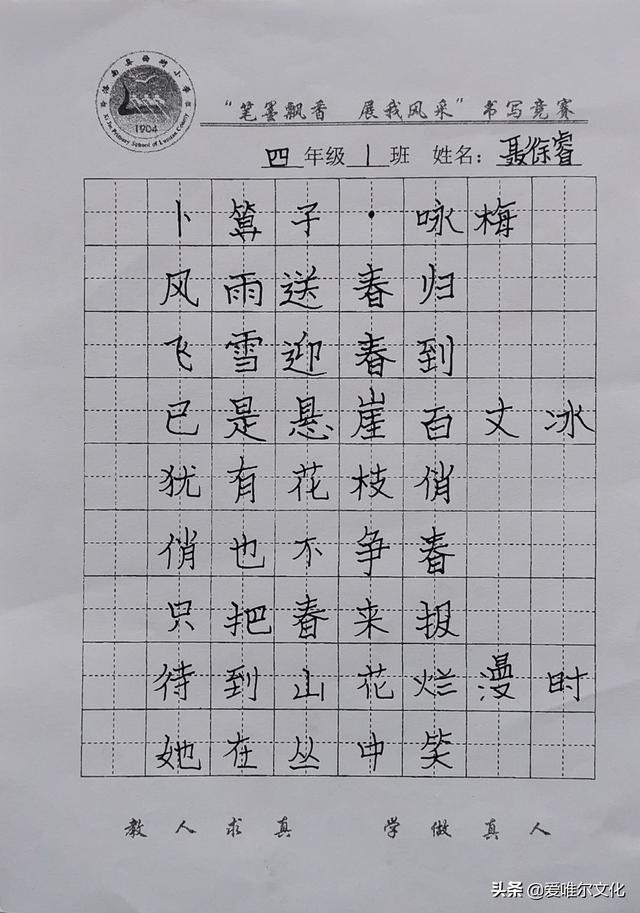 洛南县西街小学
1904
Xi Jie Primary School of Luonan County
“笔墨飘香 展我风采”书写竞赛
四年级1班 姓名：聂徐睿
卜算子·咏梅
风雨送春归
飞雪迎春到
已是悬崖百丈冰
犹有花枝俏
俏也不争春
只把春来报
待到山花烂漫时
她在丛中笑
教人求真 学做真人
头条@爱唯尔文化